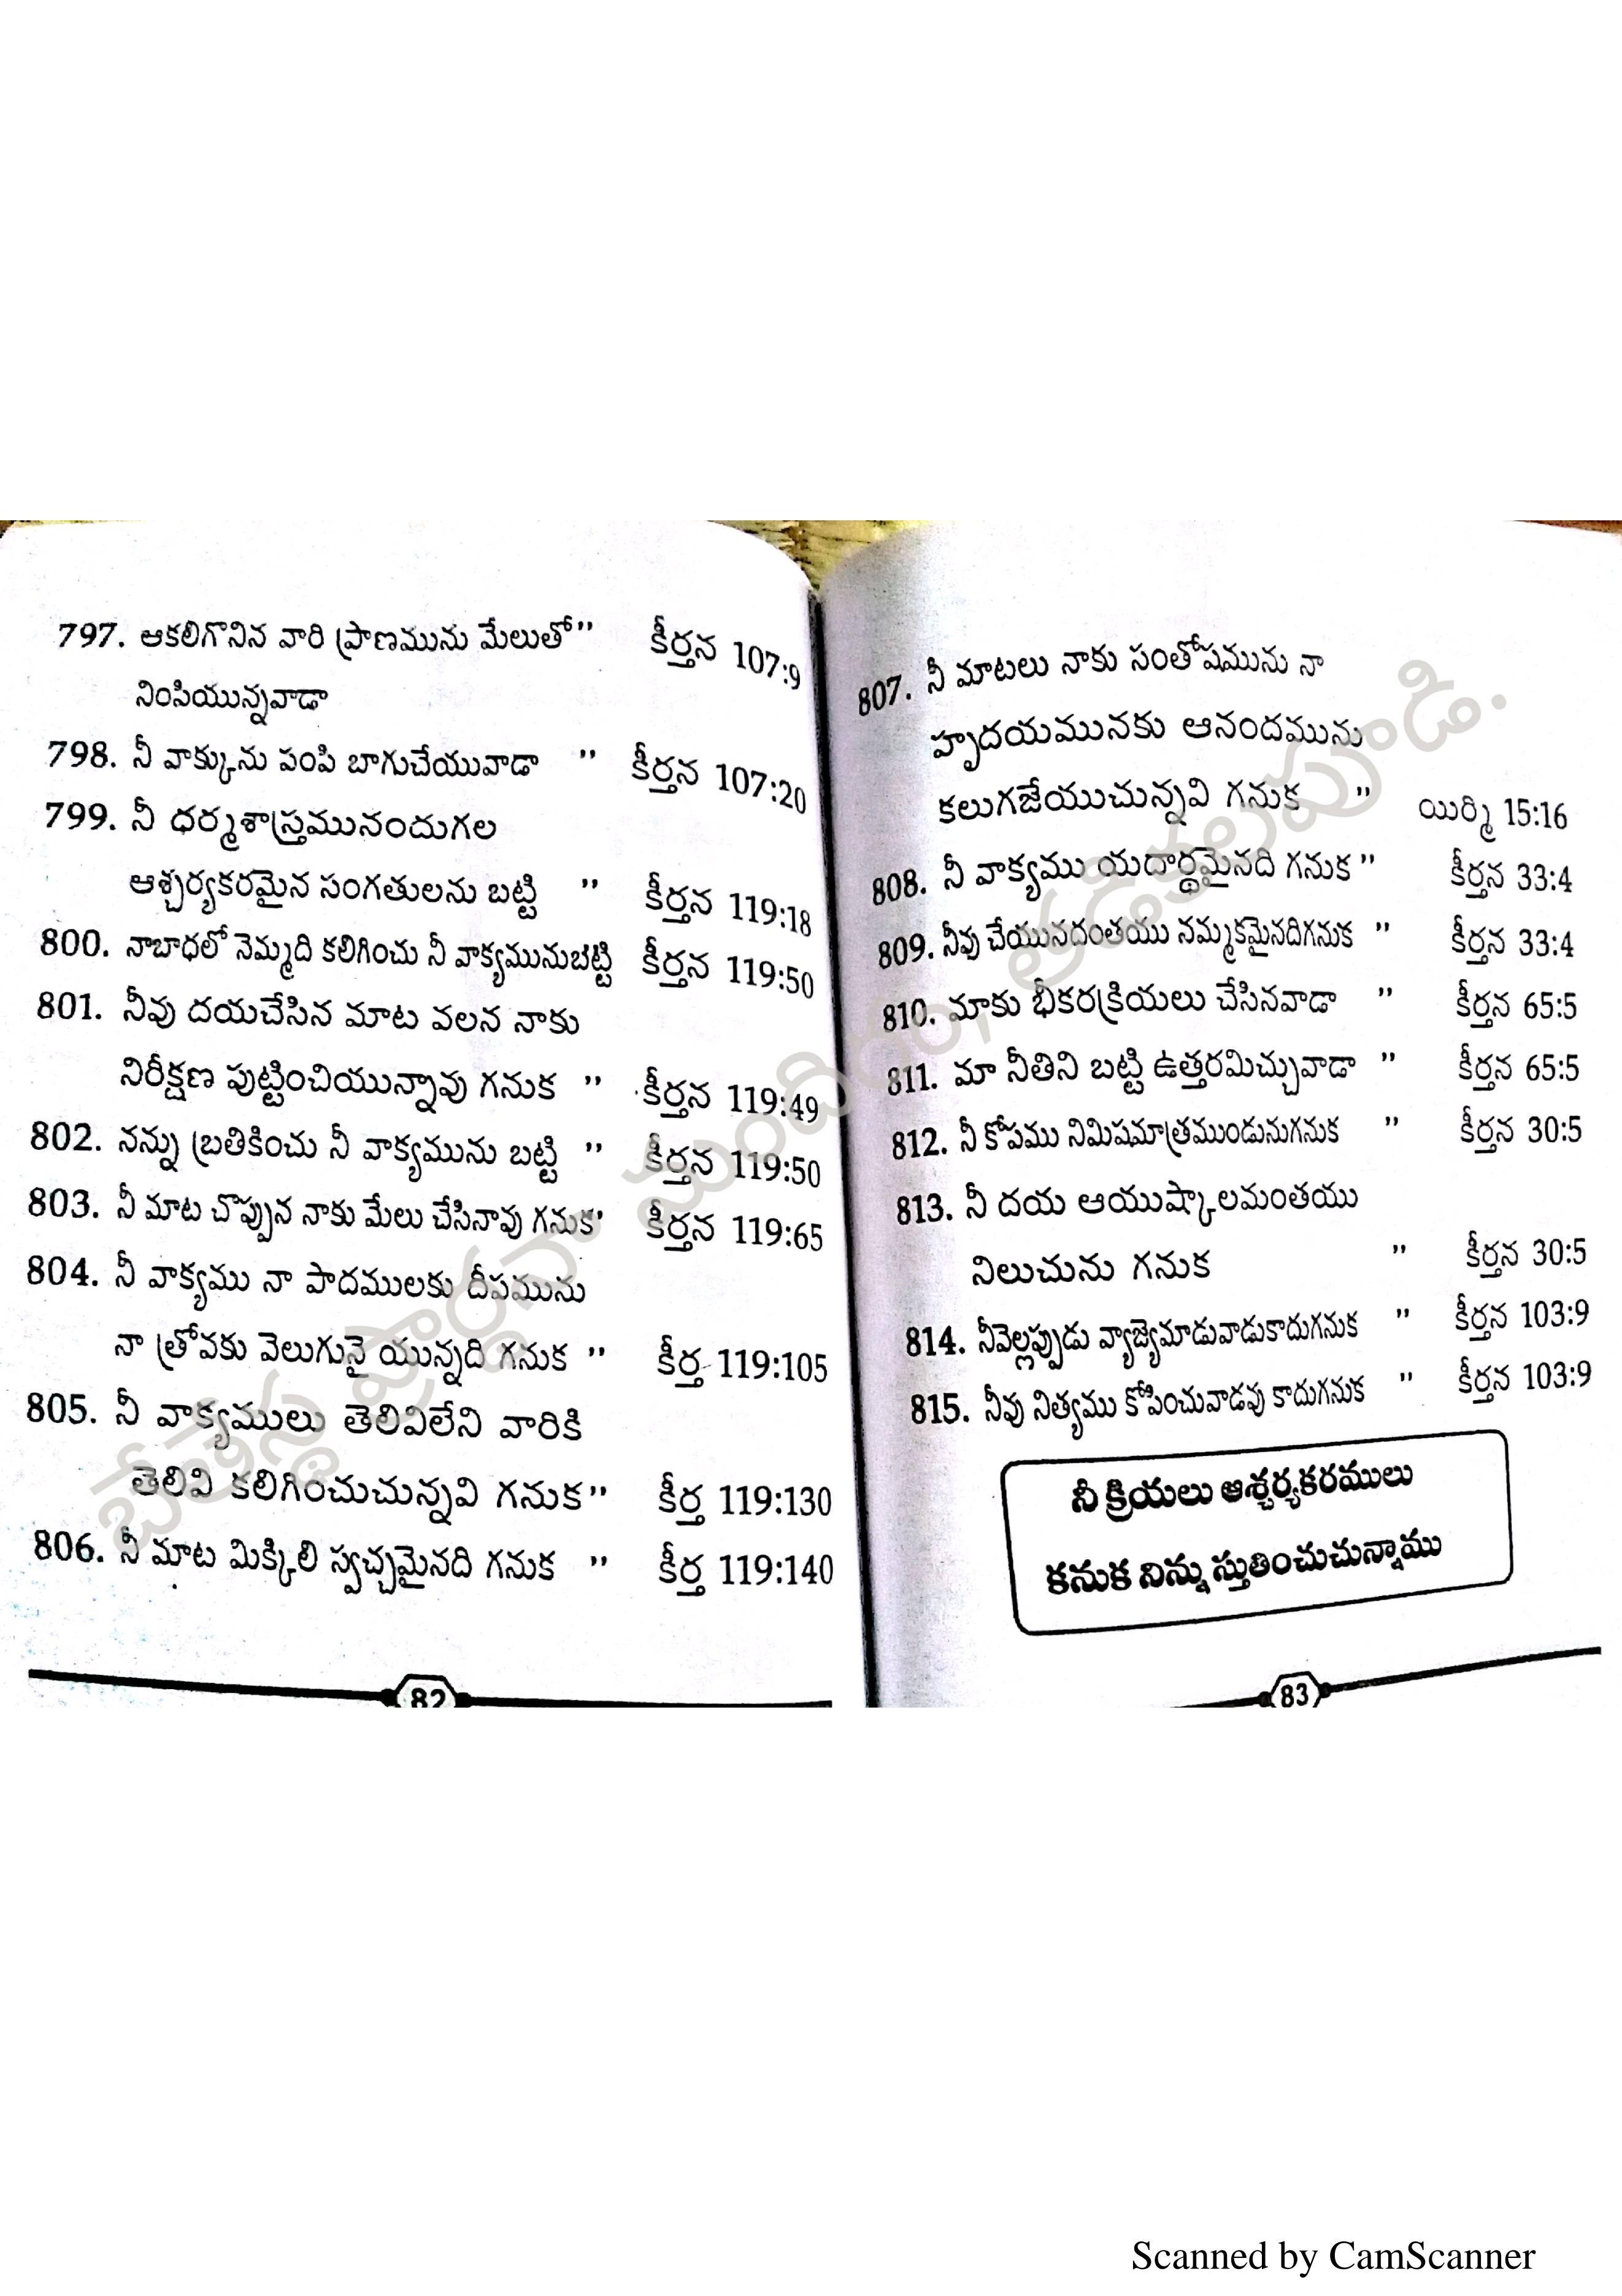 797. ఆకలిగొనిన వారి ప్రాణమును మేలుతో" కీర్తన 107:9
నింపియున్నవాడా
798. నీ వాక్కును పంపి బాగుచేయువాడా " కీర్తన 107:20
799. నీ ధర్మశాస్త్రమునందుగల
ఆశ్చర్యకరమైన సంగతులను బట్టి " కీర్తన 119:18
800. నాబాధలో నెమ్మది కలిగించు నీ వాక్యమునుబట్టి కీర్తన 119:50
801. నీవు దయచేసిన మాట వలన నాకు
నిరీక్షణ పుట్టించియున్నావు గనుక " కీర్తన 119:49
802. నన్ను బ్రతికించు నీ వాక్యమును బట్టి " కీర్తన 119:50
803. నీ మాట చొప్పున నాకు మేలు చేసినావు గనుక' కీర్తన 119:65
804. నీ వాక్యము నా పాదములకు దీపమును
నా త్రోవకు వెలుగునై యున్నది గనుక " కీర్త 119:105
805. నీ వాక్యములు తెలివిలేని వారికి
తెలివి కలిగించుచున్నవి గనుక" కీర్త 119:130
806. నీ మాట మిక్కిలి స్వచ్ఛమైనది గనుక " కీర్త 119:140
82
807. నీ మాటలు నాకు సంతోషమును నా
హృదయమునకు ఆనందమును
కలుగజేయుచున్నవి గనుక " యిర్మి 15:16
808. నీ వాక్యము యదార్థమైనది గనుక " కీర్తన 33:4
809. నీవు చేయునదంతయు నమ్మకమైనదిగనుక " కీర్తన 33:4
810. మాకు భీకరక్రియలు చేసినవాడా " కీర్తన 65:5
811. మా నీతిని బట్టి ఉత్తరమిచ్చువాడా " కీర్తన 65:5
812. నీ కోపము నిమిషమాత్రముండునుగనుక " కీర్తన 30:5
813. నీ దయ ఆయుష్కాలమంతయు
నిలుచును గనుక " కీర్తన 30:5
814. నీవెల్లప్పుడు వ్యాజ్యెమాడువాడుకాదుగనుక " కీర్తన 103:9
815. నీవు నిత్యము కోపించువాడవు కాదుగనుక " కీర్తన 103:9
నీ క్రియలు ఆశ్చర్యకరములు
కనుక నిన్ను స్తుతించుచున్నాము
83
బేతెస్ద ప్రార్థనా మందిరం, తడికలపూడి.
Scanned by CamScanner